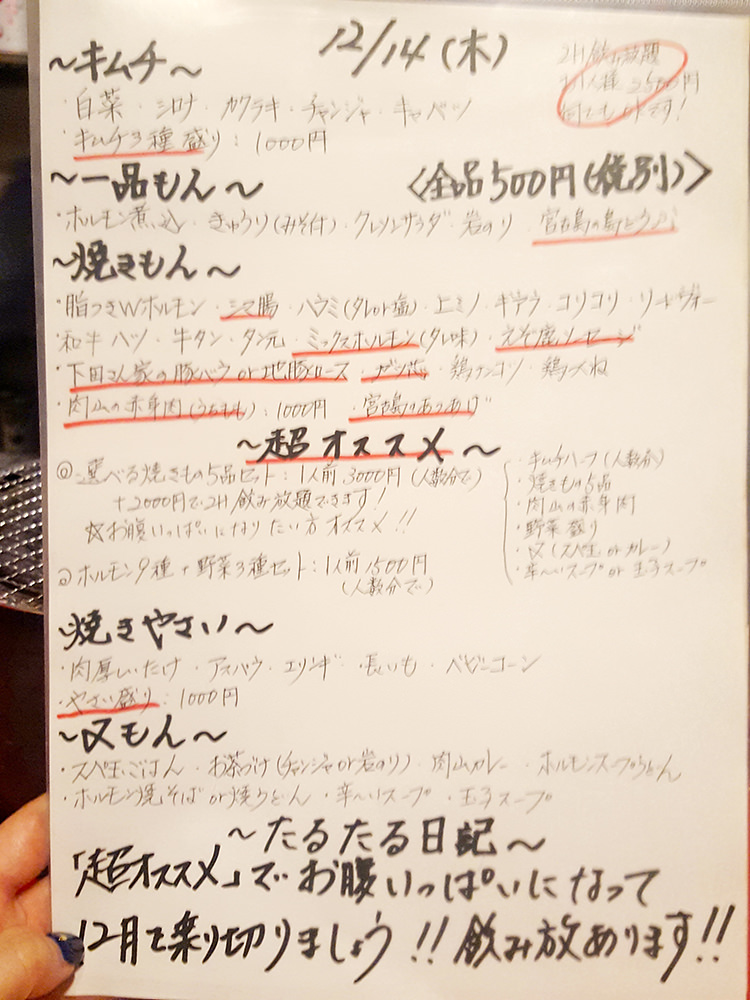 12/14(木)
2H飲み放題
お1人様 2500円
何でもOKです!
〜キムチ〜
・白菜・シロナ・カクテキ・チャンジャ・キャベツ
・キムチ3種盛り:1000円
〜一品もん〜 〈全品500円(税別)〉
・ホルモン煮込・きゅうり(みそ付)・クレソンサラダ・岩のり・宮古島の島とうふ
〜焼きもん〜
・脂つきWホルモン・シマ腸・ハラミ(タレor塩)・上ミノ・ギアラ・コリコリ・リードヴォー
和牛ハツ・牛タン・タン元・ミックスホルモン(タレ味)・えぞ鹿ソーセージ
・下田さん家の豚バラor地豚ロース・ガツ芯・鶏ナンコツ・鶏つくね
・肉山の赤身肉(うちもも):1000円・宮古島のあつあげ
〜超オススメ〜
◎選べる焼きもの5品セット:1人前3000円(人数分で)
+2000円で2H飲み放題できます!
☆お腹いっぱいになりたい方オススメ!!
・キムチハーフ(人数分)
・焼きもの5品
・肉山の赤身肉
・野菜盛り
・〆(スペ玉orカレー)
・辛〜いスープor玉子スープ
◎ホルモン9種+野菜3種セット:1人前1500円
(人数分で)
焼きやさい〜
・肉厚しいたけ・アスパラ・エリンギ・長いも・ベビーコーン
・やさい盛り:1000円
〜〆もん〜
・スペ玉ごはん・お茶づけ(チャンジャor岩のり)・肉山カレー・ホルモンスープうどん
・ホルモン焼そばor焼うどん・辛〜いスープ・玉子スープ
〜たるたる日記〜
「超オススメ」でお腹いっぱいになって
12月を乗り切りましょう!!飲み放あります!!